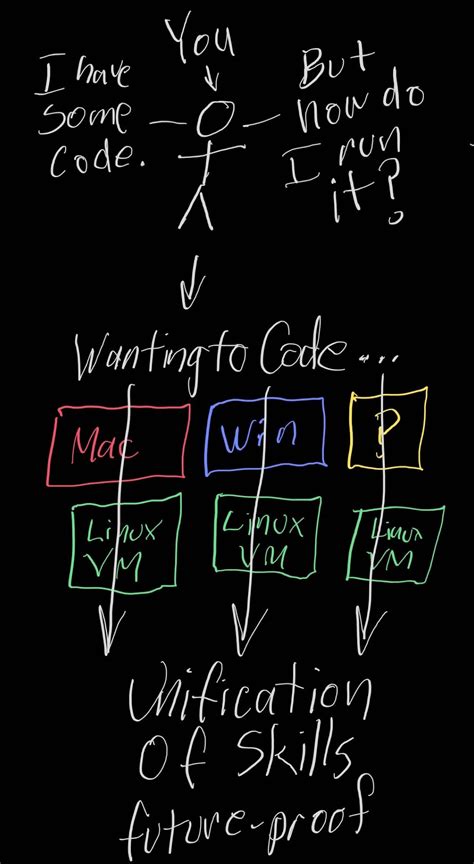 You
I have
some
code.
But
how do
I run
it?
Wanting to Code...
Mac
Win
?
Linux
VM
Linux
VM
Linux
VM
Unification
Of Skills
future-proof